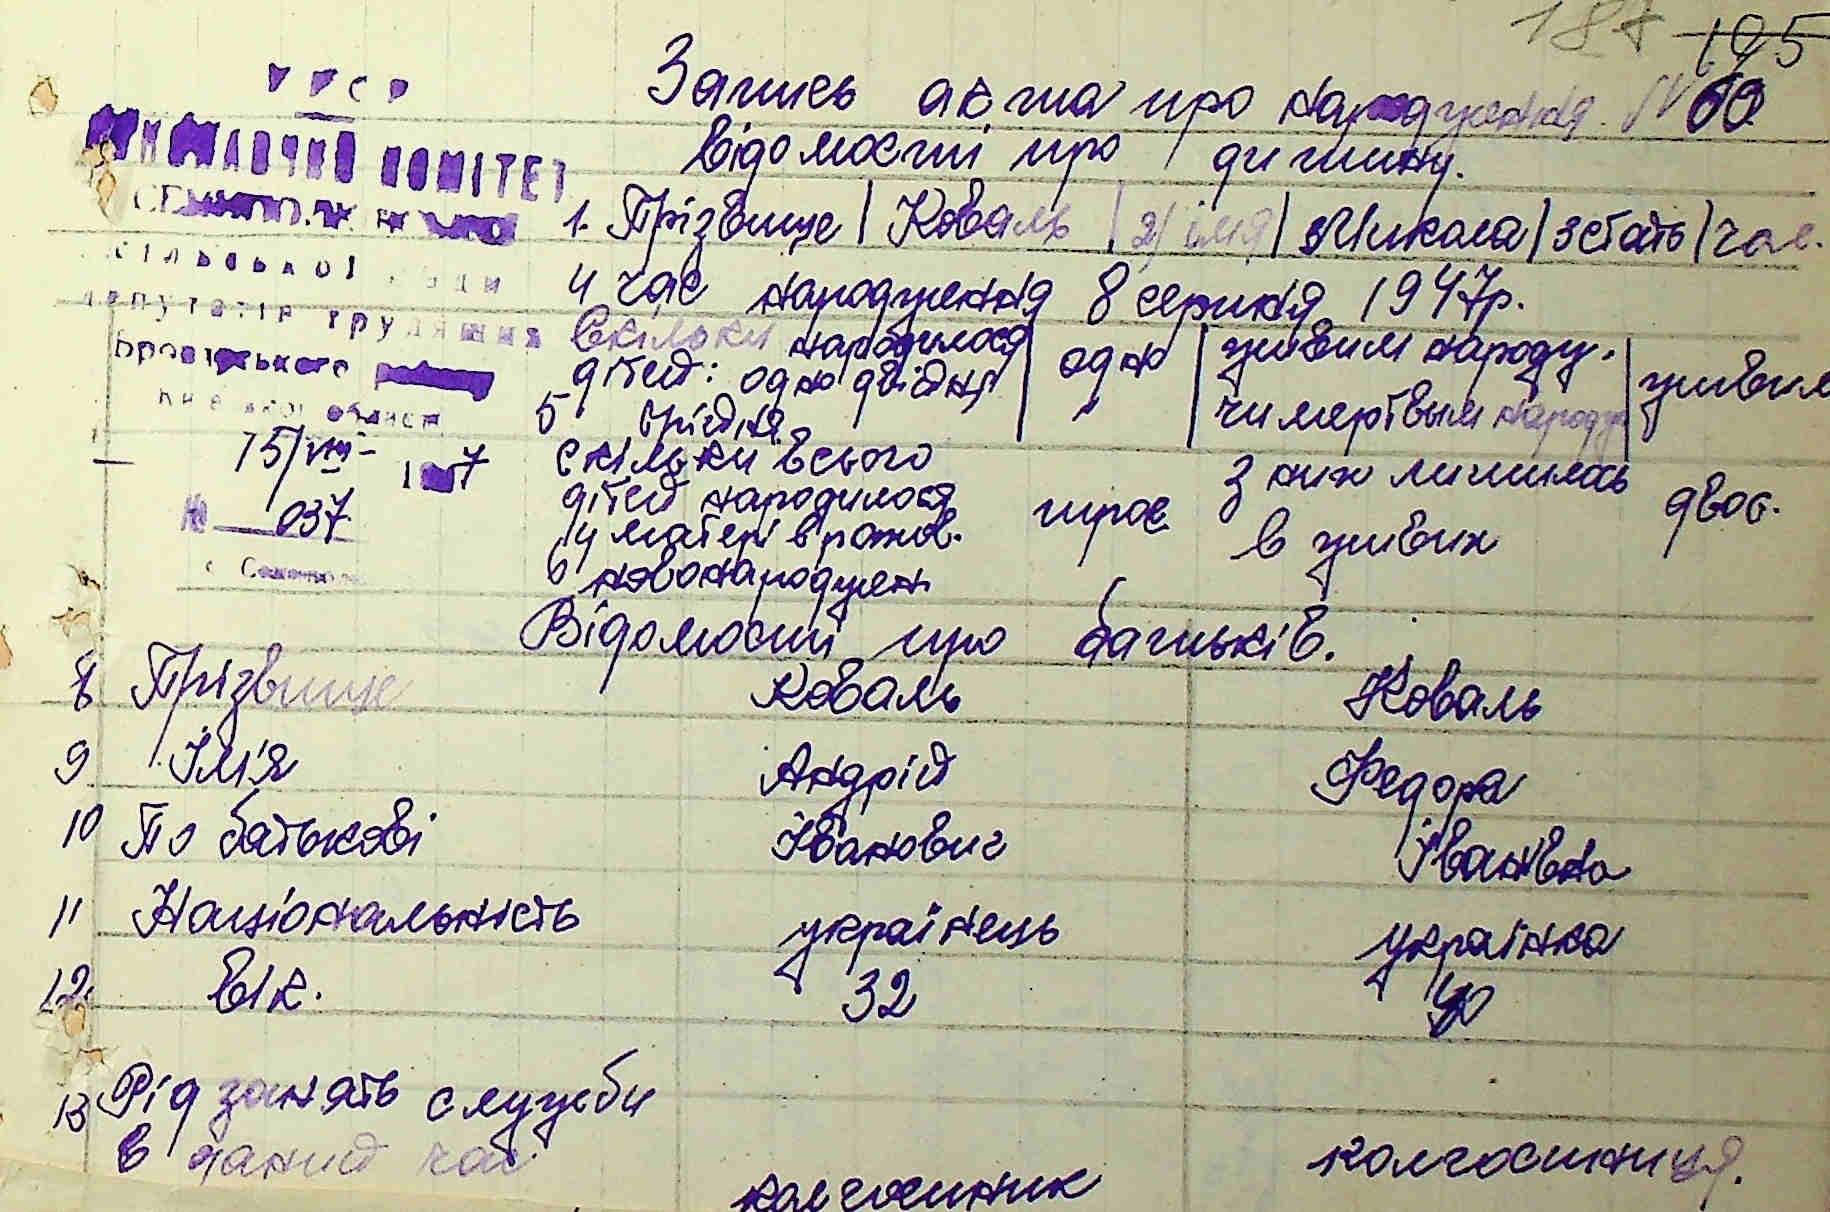 187 195
Запись акта про народження № 60
відомості про дитину.
У Р С Р
ВИКОНАВЧИЙ КОМІТЕТ
сільської ради
депутатів трудящих
Броварського
Київської області
15/VIII- 1947
№ 037
1. Прізвище | Коваль | 2/ імя | Микола | 3 стать | чол.
4 час народження 8 серпня 1947р.
Скільки народилося
дітей: одно двійня | одно | живим народж. | живим
5 трійня чи мертвим народж
скільки всього
дітей народилося троє з них лишилось двоє.
у матері в рахов. в живих
6 новонароджен
Відомості про батьків.
8 Прізвище Коваль Коваль
9 Ім'я Андрій Федора
10 По батькові Іванович Іванівна
11 Національність українець українка
12. вік. 32
13 Рід занять служби
в даний час колгоспник колгоспниця.